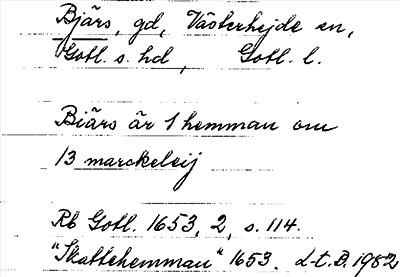 Bjärs, gd, Västerhejde sn,
Gotl. s. hd, Gotl. l.
Biärs är 1 hemman om
13 marckeleij
Rb Gotl. 1653, 2, s. 114.
"Skattehemman" 1653. L.t.B. 1982